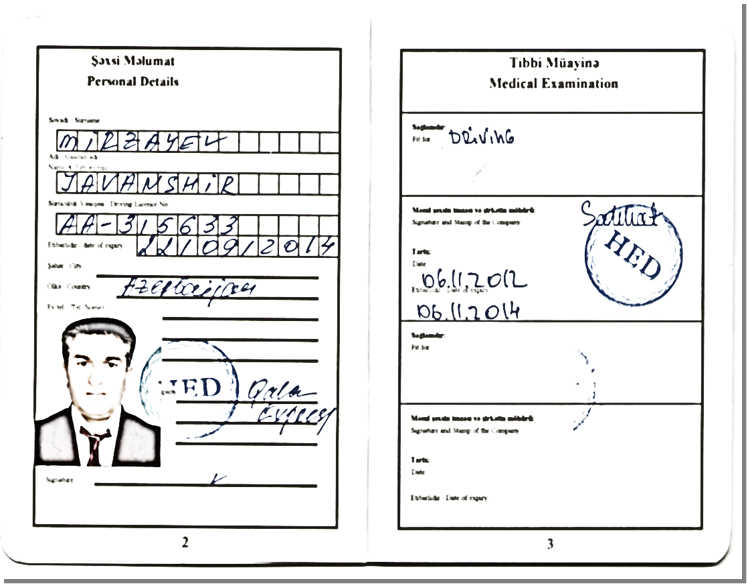 Şəxsi Məlumat
Personal Details
Soyadı Surname
MİRZAYEV
JAVANSHİR
Sürücülük Vəsiqəsi Driving Licence No
AA-315633
Etibarlıdır date of expiry 22/09/2014
Şəhər City
Ölkə Country Azerbaijan
HED
Signature
2
Tibbi Müayinə
Medical Examination
Sağlamdır:
Fit for DRİVİNG
Məsul şəxsin imzası və şirkətin möhürü:
Signature and Stamp of the Company
HED
Tarix:
Date
06.11.2012
Etibarlıdır Date of expiry
06.11.2014
Sağlamdır:
Fit for
Məsul şəxsin imzası və şirkətin möhürü:
Signature and Stamp of the Company
Tarix:
Date
Etibarlıdır Date of expiry
3